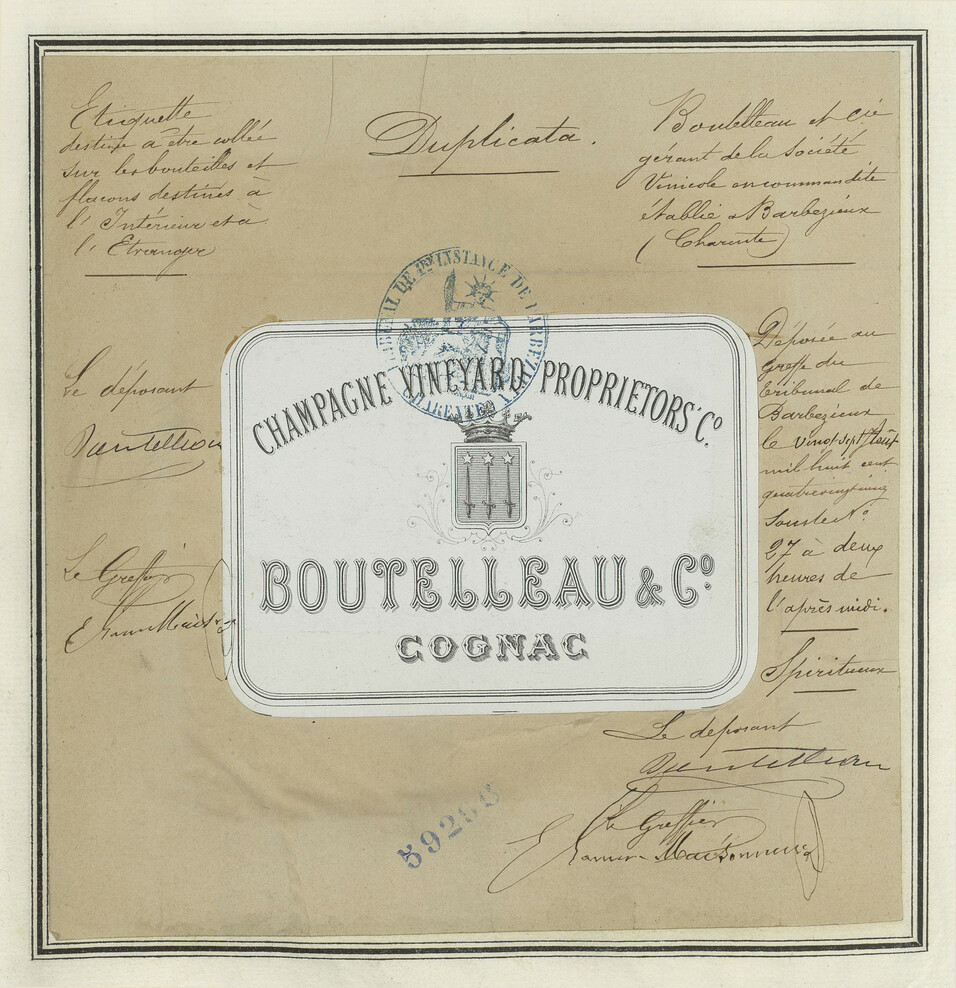 Etiquette
destinée à être collée
sur les bouteilles et
flacons destinés à
l'Intérieur et à
l'Etranger
Duplicata.
Boutelleau et Cie
gérant de la Société
Vinicole en commandite
établie à Barbezieux
(Charente)
TRIBUNAL DE 1RE INSTANCE DE BARBEZIEUX
CHARENTE
CHAMPAGNE VINEYARD PROPRIETORS' Co.
BOUTELLEAU & Co.
COGNAC
Le déposant
Le Greffier
Déposée au
Greffe du
tribunal de
Barbezieux
le vingt-sept Août
mil huit cent
quatre vingt cinq
sous le No.
27 à deux
heures de
l'après midi.
Spiritueux
Le déposant
Le Greffier